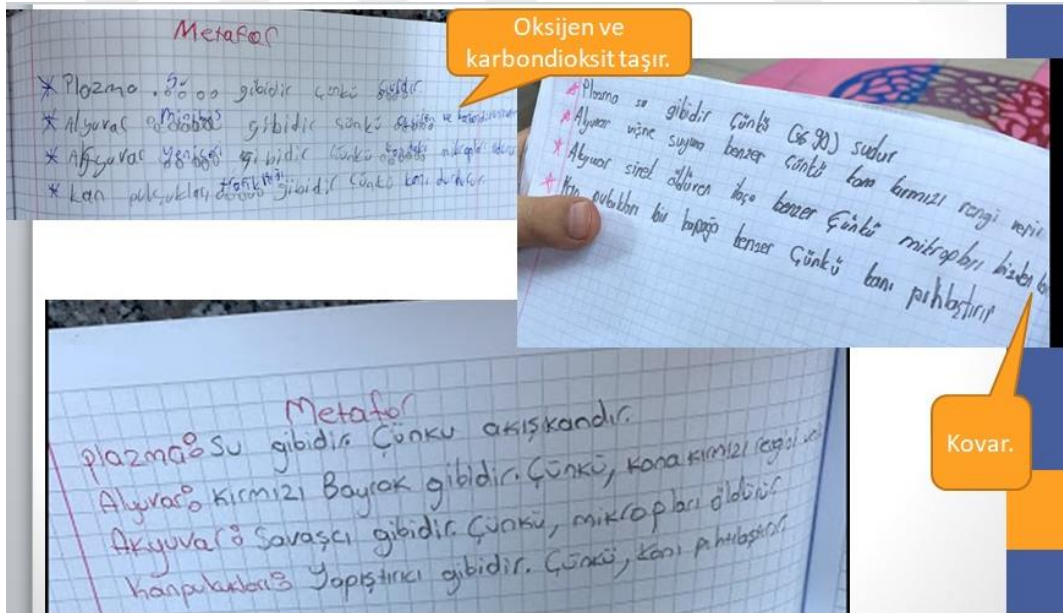 Metafor
* Plazma su gibidir çünkü sıvıdır.
* Alyuvar minibüs gibidir çünkü oksijen ve karbondioksit
* Akyuvar yeniçeri gibidir çünkü mikropları
* kan pulcukları gibidir çünkü kanı durdurur.
Oksijen ve
karbondioksit taşır.
* Plazma su gibidir Çünkü (%90) sudur
* Alyuvar vişne suyuna benzer Çünkü kana kırmızı rengi verir
* Akyuvar sinek öldüren ilaca benzer Çünkü mikropları bizden
* Kan pulcukları bir kapağa benzer Çünkü kanı pıhtlaştırır
Kovar.
Metafor
Plazma: Su gibidir. Çünkü akışkandır.
Alyuvar: Kırmızı Bayrak gibidir. Çünkü, kana kırmızı rengini
Akyuvar: Savaşcı gibidir. Çünkü, mikropları öldürür
kanpulcukları: Yapıştırıcı gibidir. Çünkü, kanı pıhtılaştırır